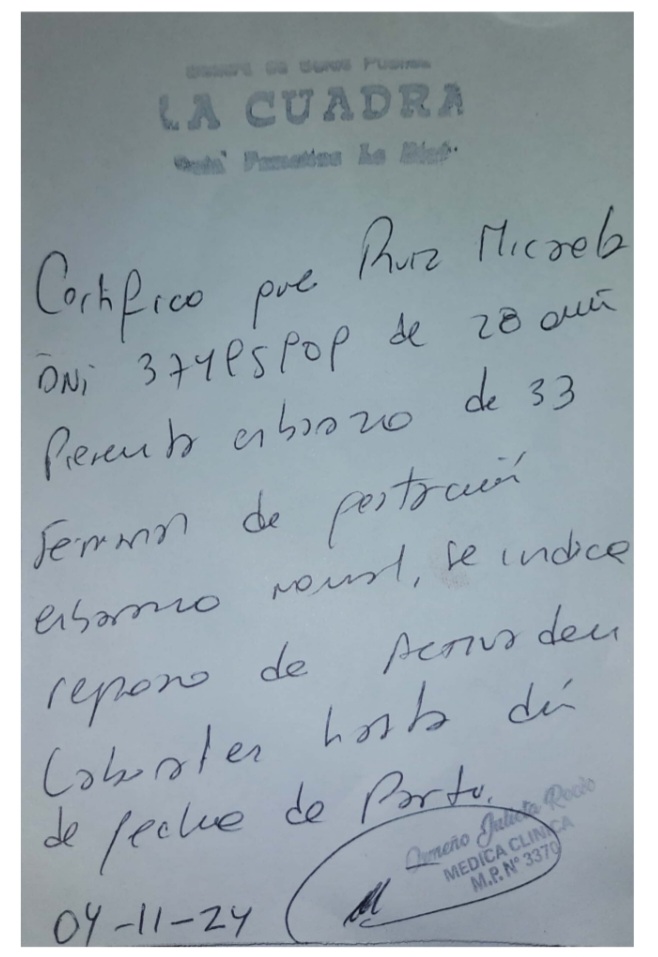 LA CUADRA
Certifico que Ruiz Micaela
DNI de 28 años
Presenta embarazo de 33
semanas de gestación
embarazo normal, se indica
reposo de actividades
laborales hasta día
de fecha de Parto.
Julieta Rocio
MEDICA CLINICA
M.P. N° 3370
04-11-24